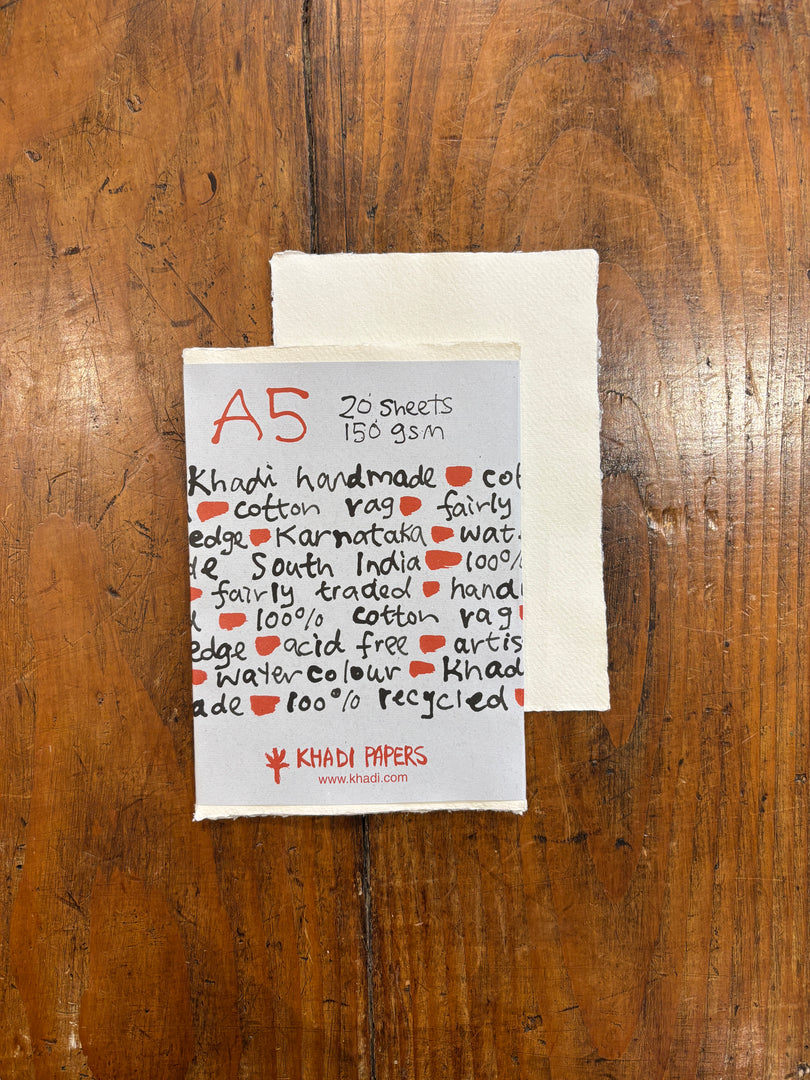 A5
20 sheets
150 gsm
Khadi handmade cot
cotton rag fairly
edge Karnataka wat
de South India 100%
fairly traded hand
100% cotton rag
edge acid free artis
watercolour Khad
ade 100% recycled
KHADI PAPERS
www.khadi.com